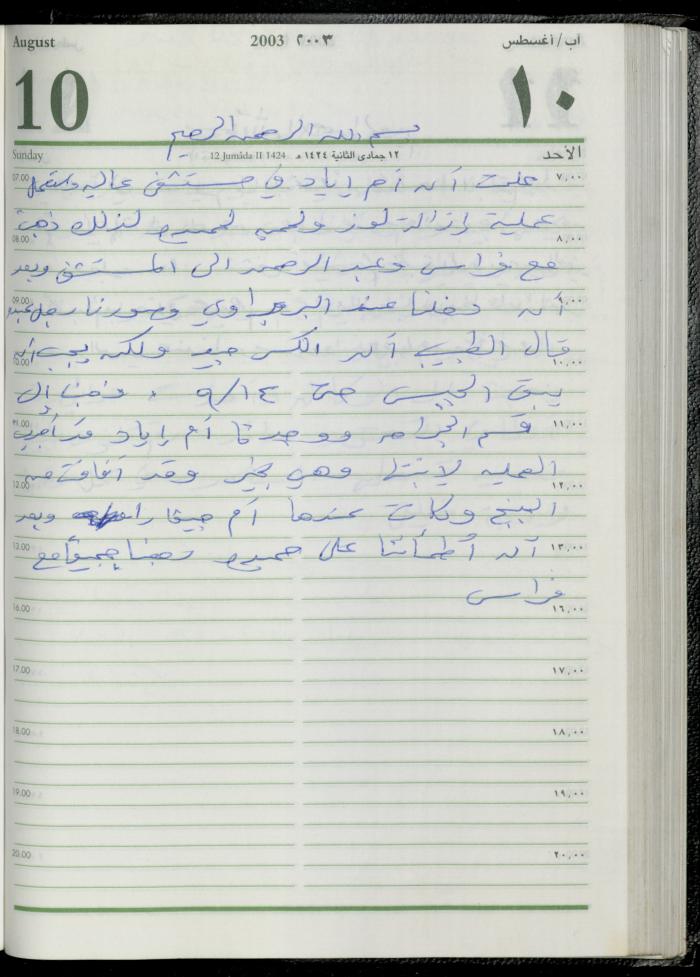 August 2003 ٢٠٠٣ آب/أغسطس
10 ١٠
بسم الله الرحمن الرحيم
Sunday 12 Jumâda II 1424 ١٢ جمادى الثانية ١٤٢٤ هـ الأحد
07.00 علمت أن أم إياد في مستشفى عاليه ٧,٠٠
عملية إزالة لوز ولحمية لحميده لذلك ذهبت
08.00 ٨,٠٠
مع فراس وعبد الرحمن الى المستشفى وبعد
09.00 أن دخلنا عند البرجاوي وصورنا رجل عبد ٩,٠٠
قال الطبيب أن الكسر جيد ولكن يجب أن
10.00 ١٠,٠٠
يبقى الجبس حتى ٩/١٤ . ذهبنا إلى
11.00 قسم الجراحه ووجدنا أم إياد قد أجريت ١١,٠٠
العمليه لابنتها وهي بخير وقد أفاقت من
12.00 ١٢,٠٠
البنج وكانت عندها أم وبعد
13.00 أن أطمأننا على حميده ذهبنا جميعاً مع ١٣,٠٠
فراس
16.00 ١٦,٠٠
17.00 ١٧,٠٠
18.00 ١٨,٠٠
19.00 ١٩,٠٠
20.00 ٢٠,٠٠